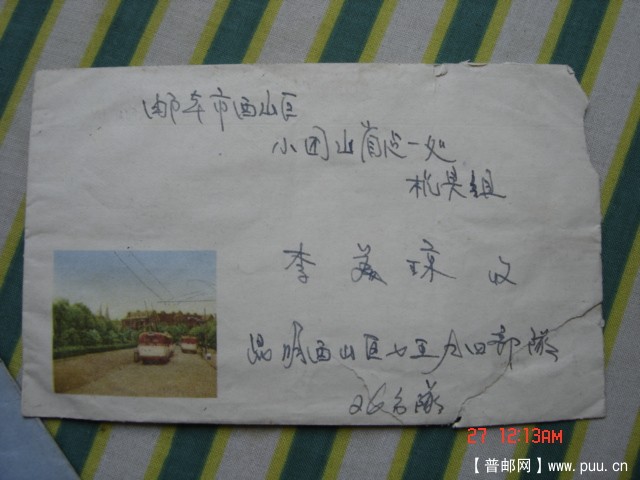 邮本市西山区
小团山首总一处
机具组
李 美 琼 收
昆明西山区七五九四部隊
26分隊
27 12:13AM
【普邮网】www.puu.cn